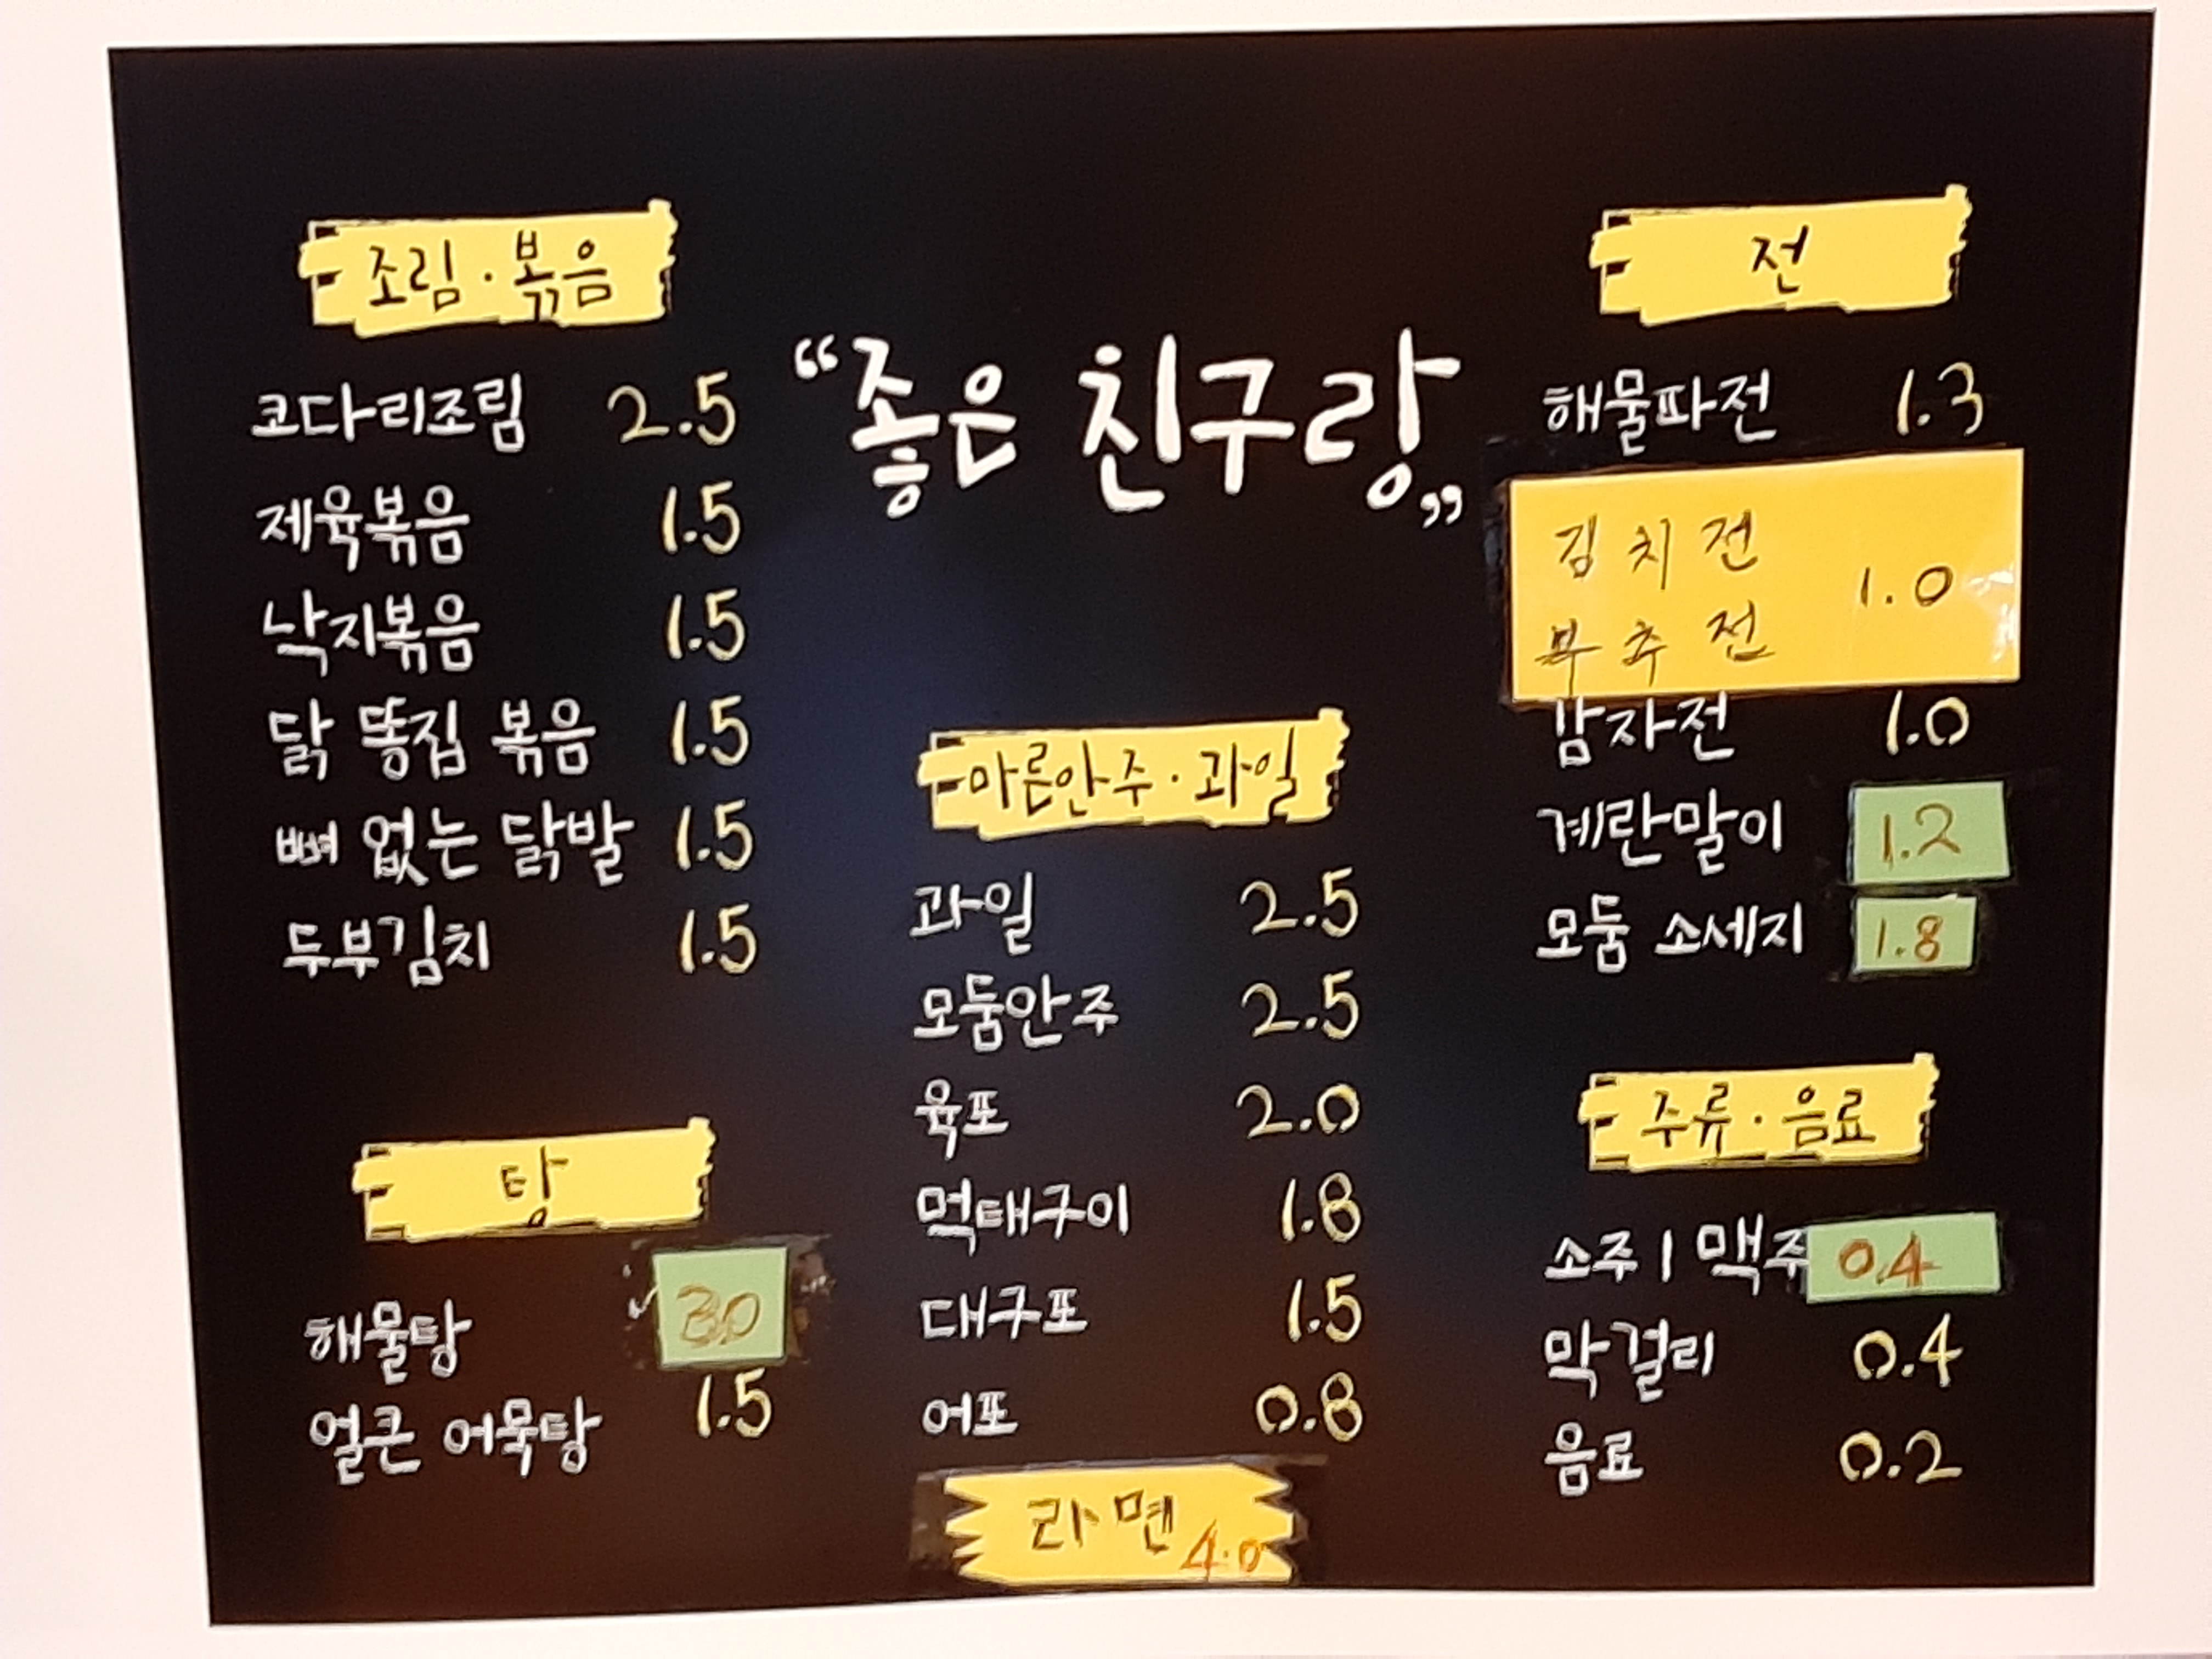 조림·볶음
코다리조림 2.5
제육볶음 1.5
낙지볶음 1.5
닭 똥집 볶음 1.5
뼈 없는 닭발 1.5
두부김치 1.5
탕
해물탕 3.0
얼큰 어묵탕 1.5
“좋은 친구랑”
마른안주·과일
과일 2.5
모둠안주 2.5
육포 2.0
먹태구이 1.8
대구포 1.5
어포 0.8
라면 4.0
전
해물파전 1.3
김치전
부추전 1.0
감자전 1.0
계란말이 1.2
모둠 소세지 1.8
주류·음료
소주 | 맥주 0.4
막걸리 0.4
음료 0.2